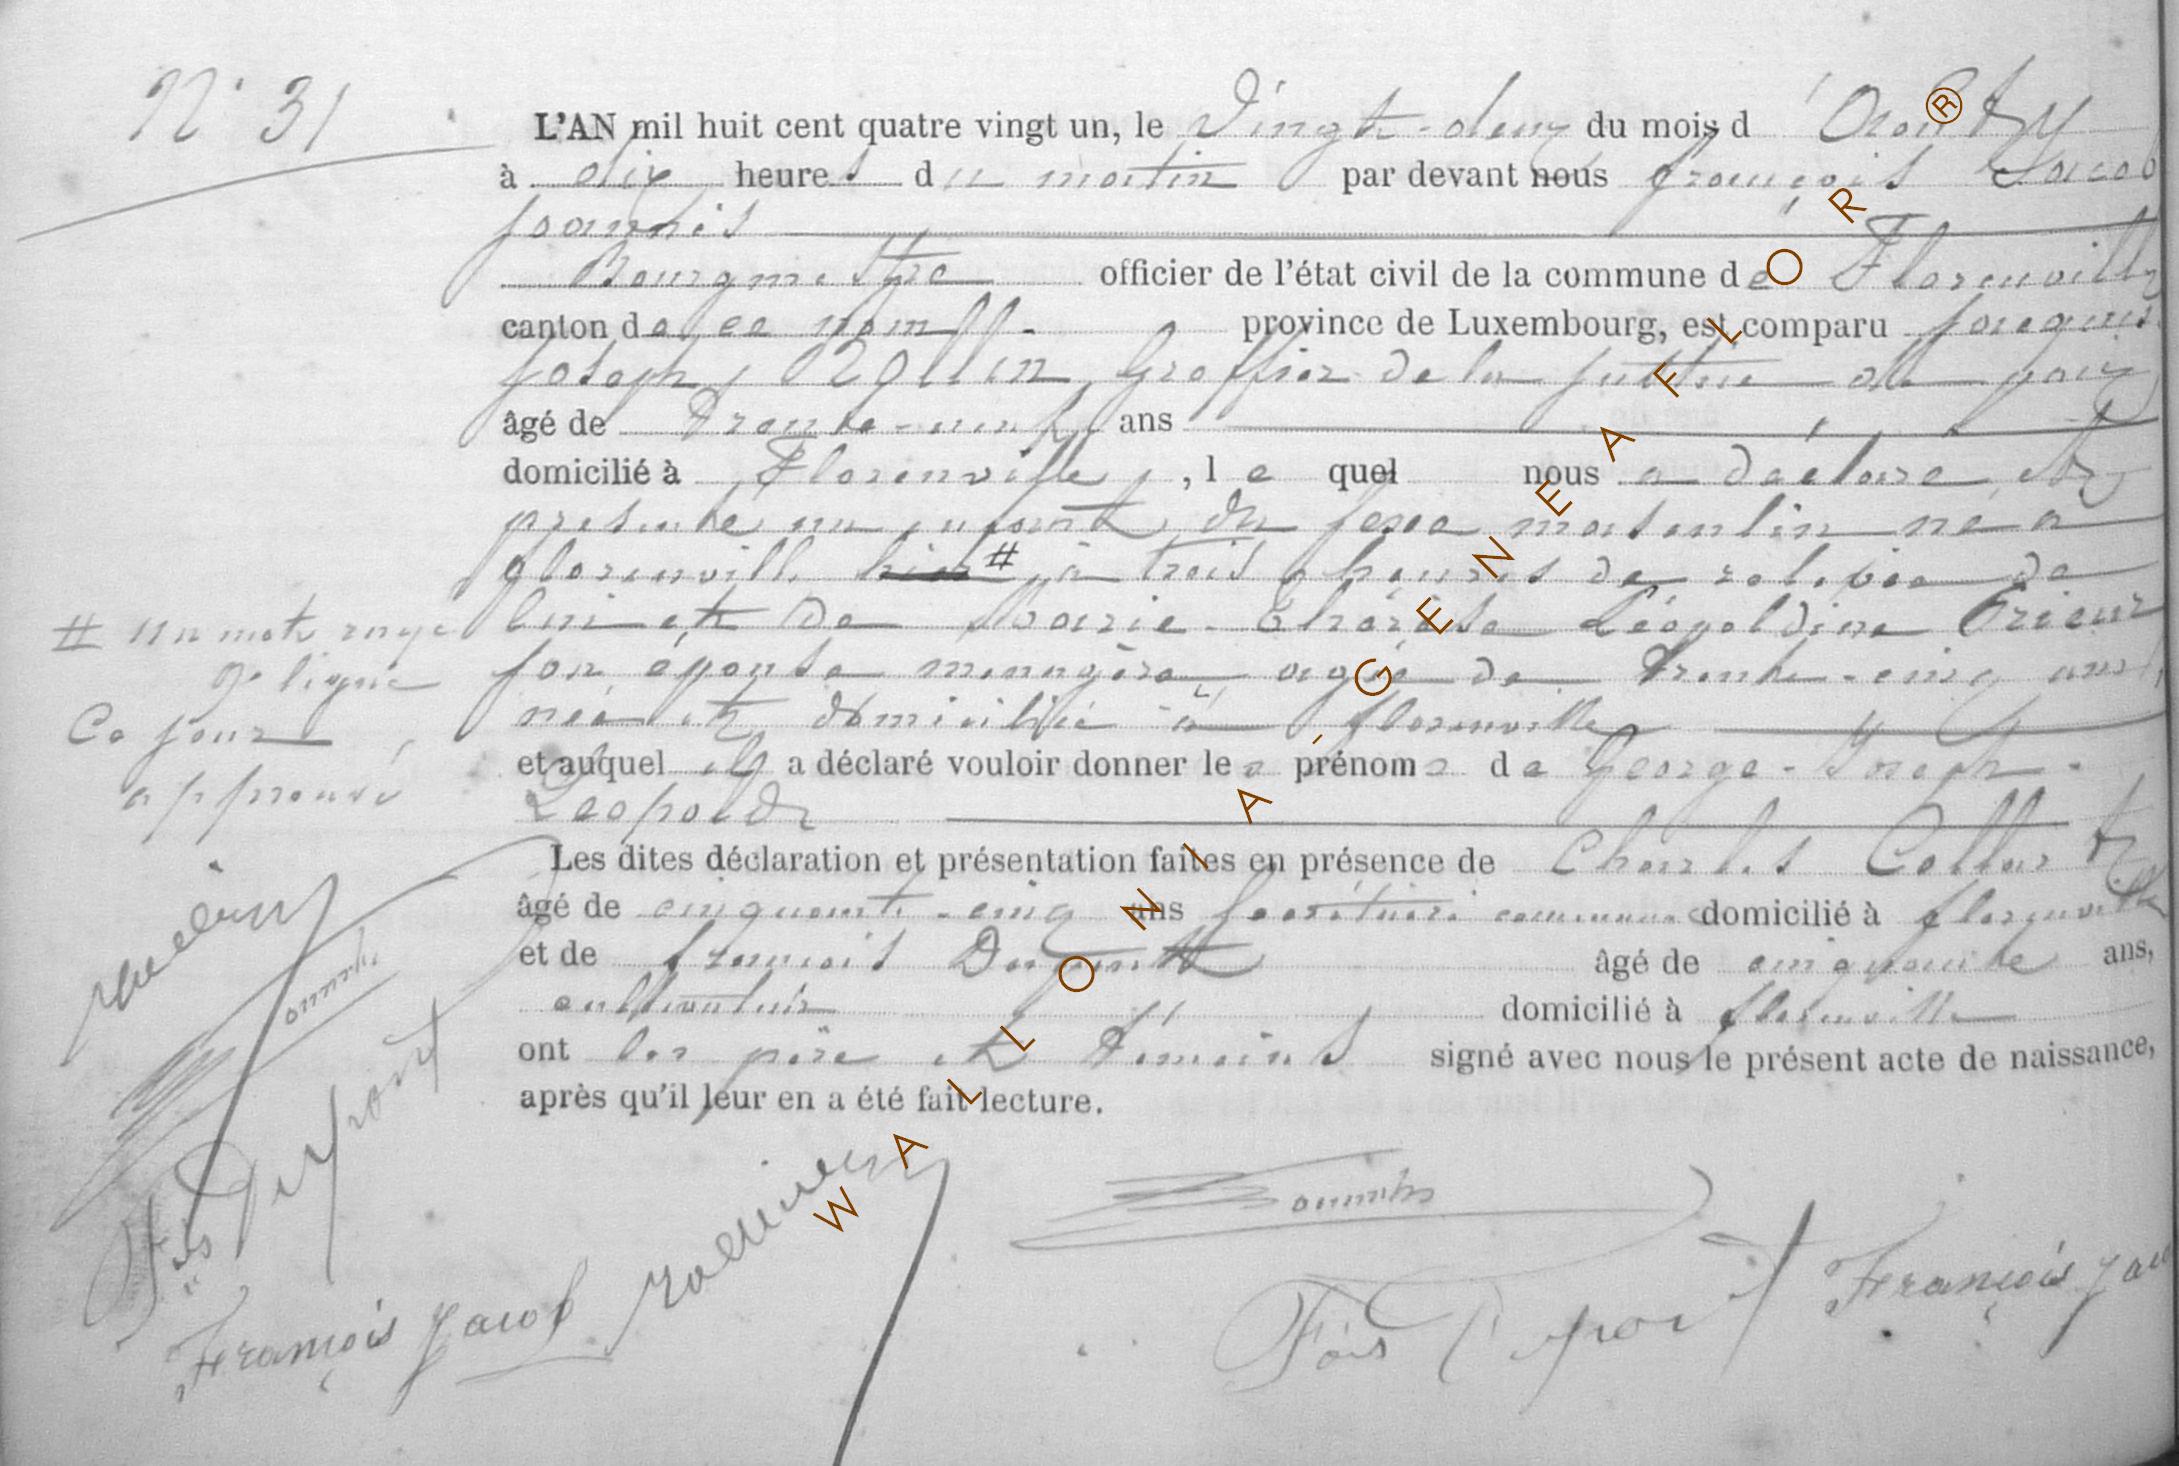 N° 31
L'AN mil huit cent quatre vingt un, le Vingt-deux du mois d'Août
à dix heures du matin par devant nous françois Jacob
joannis
Bourgmestre officier de l'état civil de la commune de Florenville
canton de ce nom province de Luxembourg, est comparu jacques
joseph, Greffier de la justice de paix
âgé de Trente-neuf ans
domicilié à Florenville, lequel nous a déclaré et
présenté un enfant du sexe masculin né a
florenville hier # à trois heures de relevée de
lui et de Marie-Thérèse Léopoldine
son épouse menagère agée de Trente-cinq ans,
née et domiciliée à florenville
et auquel il a déclaré vouloir donner les prénoms de George-Joseph-
Leopold
Les dites déclaration et présentation faites en présence de Charles Collart
âgé de cinquante-cinq ans Secrétaire communal domicilié à florenville
et de françois Dupont âgé de cinquante ans,
cultivateur domicilié à florenville
ont les père et témoins signé avec nous le présent acte de naissance,
après qu'il leur en a été fait lecture.
# un mot rayé
9e ligne
Ce jour
approuvé
Fois Dupont
François Jacob
Fois Dupont
François Jac
WALLONIA GENEAFLOR ®